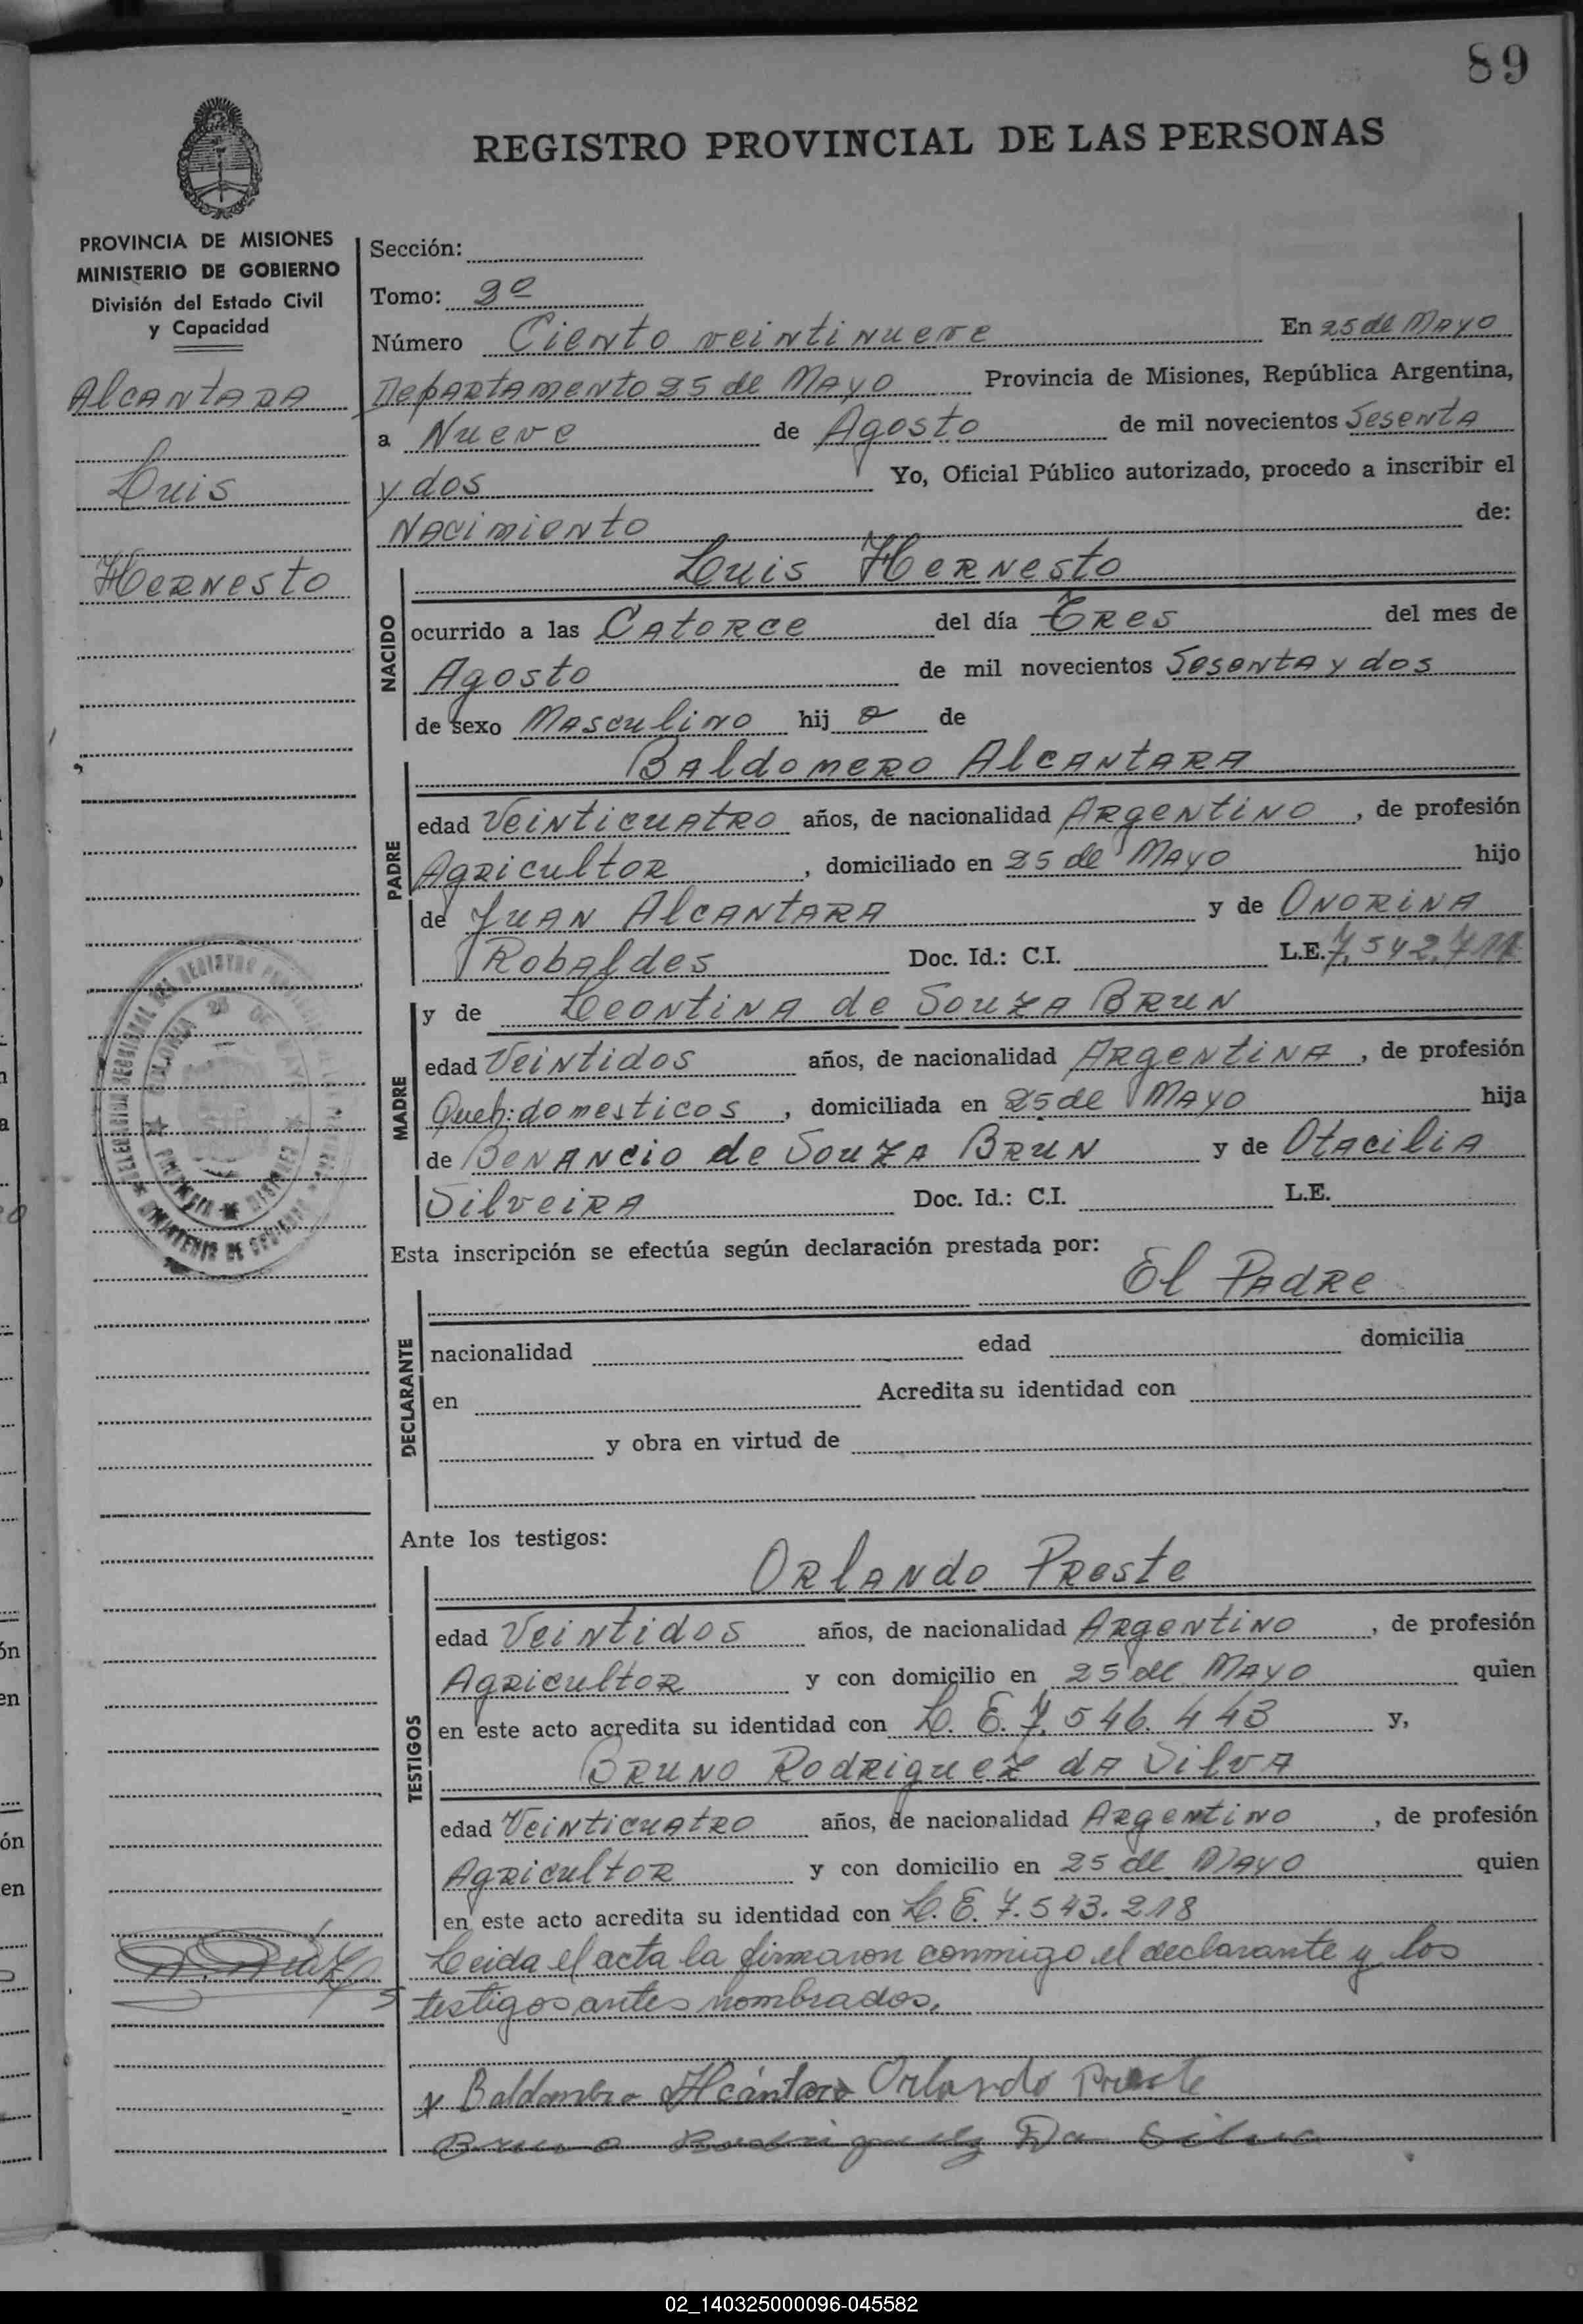 89
REGISTRO PROVINCIAL DE LAS PERSONAS
PROVINCIA DE MISIONES
MINISTERIO DE GOBIERNO
División del Estado Civil
y Capacidad
Alcantara
Luis
Hernesto
Sección:
Tomo: 2º
Número Ciento veintinueve En 25 de Mayo
Departamento 25 de Mayo Provincia de Misiones, República Argentina,
a Nueve de Agosto de mil novecientos Sesenta
y dos Yo, Oficial Público autorizado, procedo a inscribir el
Nacimiento de:
NACIDO
Luis Hernesto
ocurrido a las Catorce del día Tres del mes de
Agosto de mil novecientos Sesenta y dos
de sexo Masculino hij o de
PADRE
Baldomero Alcantara
edad Veinticuatro años, de nacionalidad Argentino, de profesión
Agricultor, domiciliado en 25 de Mayo hijo
de Juan Alcantara y de Onorina
Robaldes Doc. Id.: C.I. L.E. 7.542.711
MADRE
y de Leontina de Souza Brun
edad Veintidos años, de nacionalidad Argentina, de profesión
Queh: domesticos, domiciliada en 25 de Mayo hija
de Benancio de Souza Brun y de Otacilia
Silveira Doc. Id.: C.I. L.E.
Esta inscripción se efectúa según declaración prestada por:
El Padre
DECLARANTE
nacionalidad edad domicilia
en Acredita su identidad con
y obra en virtud de
Ante los testigos:
TESTIGOS
Orlando Preste
edad Veintidos años, de nacionalidad Argentino, de profesión
Agricultor y con domicilio en 25 de Mayo quien
en este acto acredita su identidad con L. E. 7.546.443 y,
Bruno Rodriguez da Silva
edad Veinticuatro años, de nacionalidad Argentino, de profesión
Agricultor y con domicilio en 25 de Mayo quien
en este acto acredita su identidad con L. E. 7.543.218
Leida el acta la firmaron conmigo el declarante y los
testigos antes nombrados.
x Baldomero Alcántara Orlando Preste
Bruno Rodriguez Da Silva
02_140325000096-045582